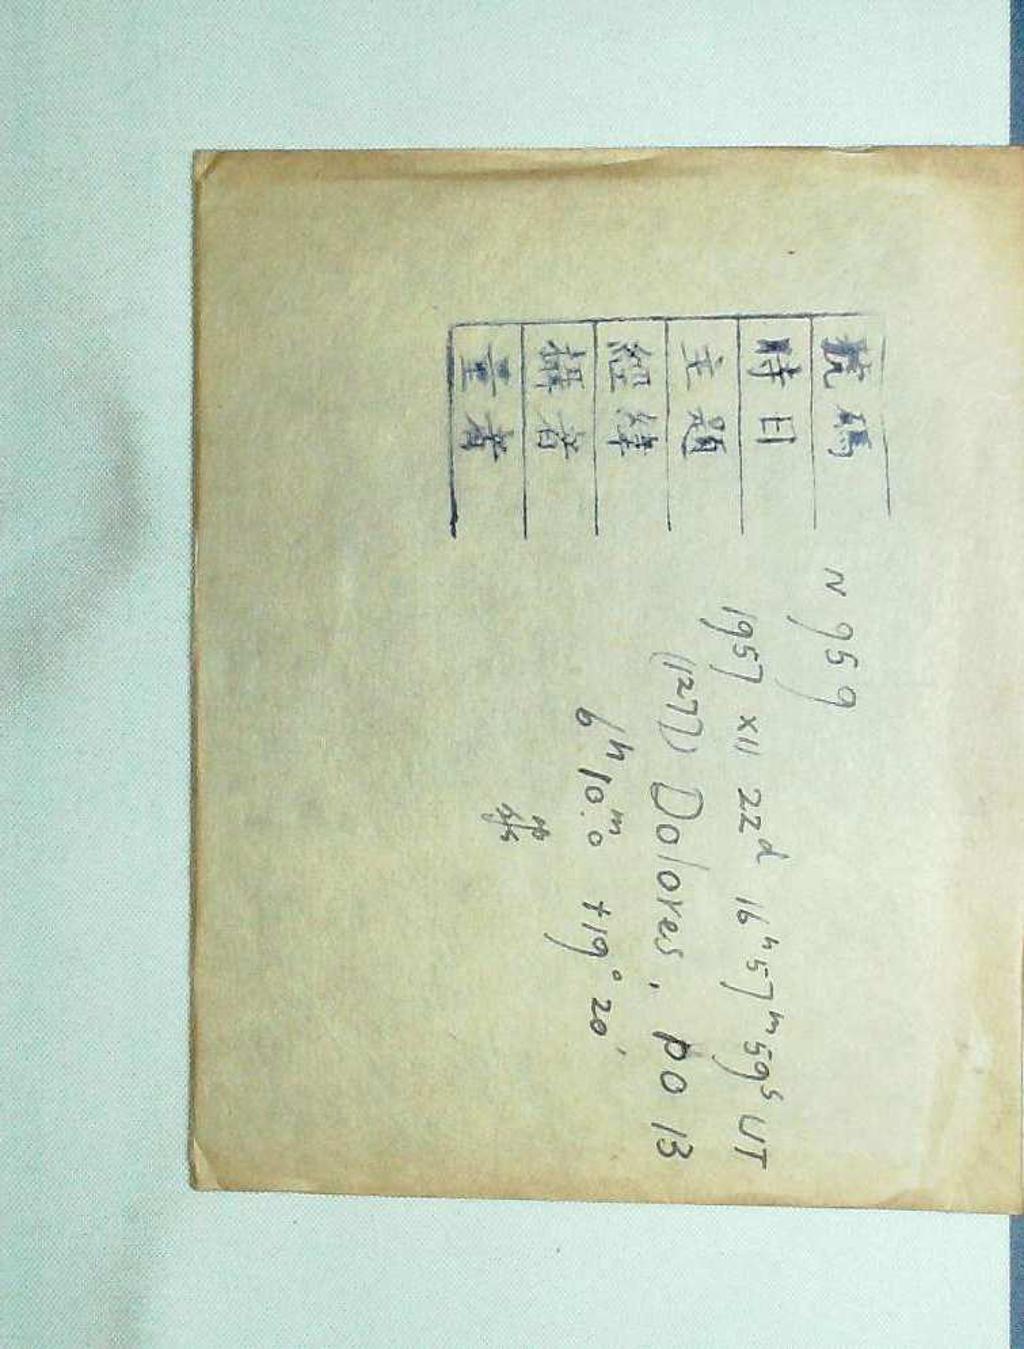 號碼 N 959
時日 1957 XII 22ᵈ 16ʰ 57ᵐ 59ˢ UT
主題 (1277) Dolores, PO 13
經緯 6ʰ 10ᵐ.0 +19° 20'
攝者
量者